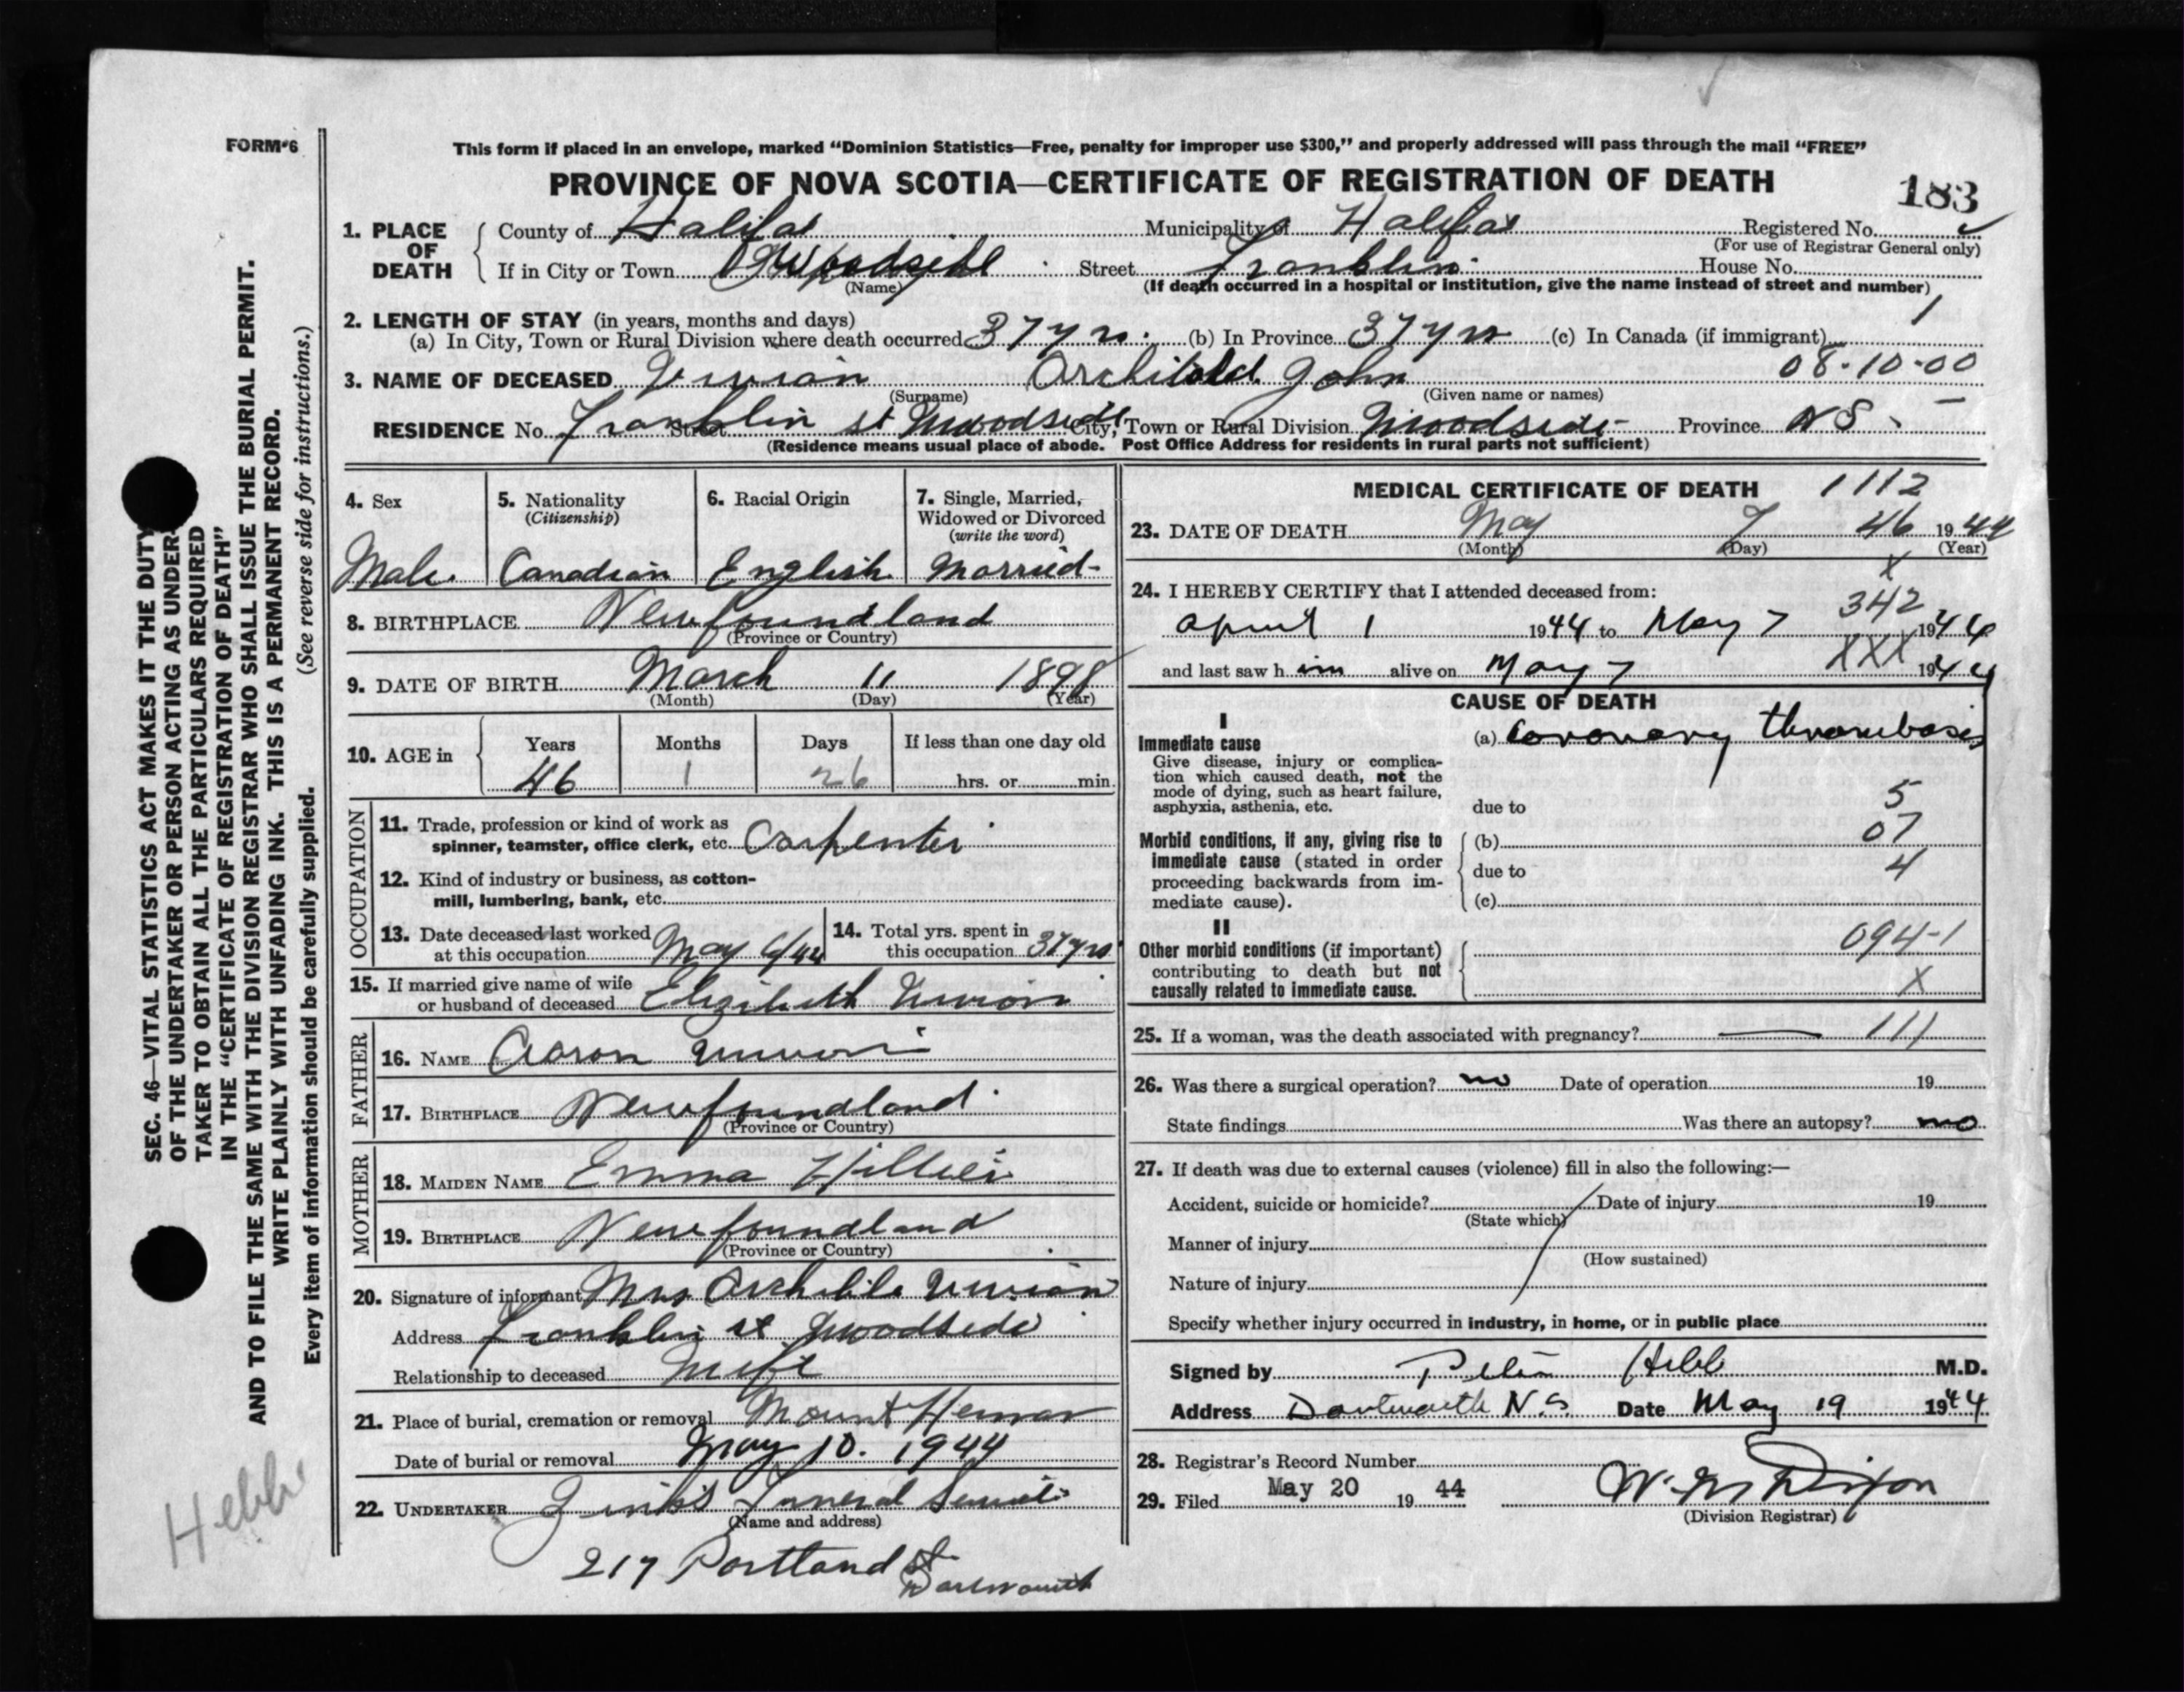 FORM 6
This form if placed in an envelope, marked “Dominion Statistics—Free, penalty for improper use $300,” and properly addressed will pass through the mail “FREE”
PROVINCE OF NOVA SCOTIA—CERTIFICATE OF REGISTRATION OF DEATH
183
1. PLACE OF DEATH { County of Halifax Municipality of Halifax Registered No.
(For use of Registrar General only)
If in City or Town Woodside Street Franklin House No.
(Name) (If death occurred in a hospital or institution, give the name instead of street and number)
2. LENGTH OF STAY (in years, months and days) 1
(a) In City, Town or Rural Division where death occurred 37 yrs. (b) In Province 37 yrs (c) In Canada (if immigrant)
08-10-00
3. NAME OF DECEASED Vivian Archibald John
(Surname) (Given name or names)
RESIDENCE No. Franklin st Woodside Street City, Town or Rural Division Woodside Province N S
(Residence means usual place of abode. Post Office Address for residents in rural parts not sufficient)
4. Sex 5. Nationality (Citizenship) 6. Racial Origin 7. Single, Married, Widowed or Divorced (write the word)
Male Canadian English Married
8. BIRTHPLACE Newfoundland
(Province or Country)
9. DATE OF BIRTH March 11 1898
(Month) (Day) (Year)
10. AGE in { Years Months Days If less than one day old
46 1 26 hrs. or min.
OCCUPATION
11. Trade, profession or kind of work as
spinner, teamster, office clerk, etc. Carpenter
12. Kind of industry or business, as cotton-
mill, lumbering, bank, etc.
13. Date deceased last worked at this occupation May 6/44 14. Total yrs. spent in this occupation 37 yrs
15. If married give name of wife
or husband of deceased Elizibeth Vivian
FATHER
16. NAME Aaron Vivian
17. BIRTHPLACE Newfoundland
(Province or Country)
MOTHER
18. MAIDEN NAME Emma Hillier
19. BIRTHPLACE Newfoundland
(Province or Country)
20. Signature of informant Mrs Vivian
Address Franklin st Woodside
Relationship to deceased Wife
21. Place of burial, cremation or removal Mount Hermon
Date of burial or removal May 10. 1944
22. UNDERTAKER Zink's Funeral Service
(Name and address)
217 Portland St
Dartmouth
MEDICAL CERTIFICATE OF DEATH 1112
23. DATE OF DEATH May 7 46 1944
(Month) (Day) (Year)
X
24. I HEREBY CERTIFY that I attended deceased from:
342
April 1 1944 to May 7 1944
and last saw h im alive on May 7 XXX 1944
CAUSE OF DEATH
I
Immediate cause (a) Coronary thrombosis
Give disease, injury or complica-
tion which caused death, not the
mode of dying, such as heart failure,
asphyxia, asthenia, etc. due to 5
Morbid conditions, if any, giving rise to (b) 07
immediate cause (stated in order due to 4
proceeding backwards from im-
mediate cause). (c)
II
Other morbid conditions (if important) 094-1
contributing to death but not
causally related to immediate cause. X
25. If a woman, was the death associated with pregnancy? — 111
26. Was there a surgical operation? no Date of operation 19
State findings Was there an autopsy? no
27. If death was due to external causes (violence) fill in also the following:—
Accident, suicide or homicide? Date of injury 19
(State which)
Manner of injury
(How sustained)
Nature of injury
Specify whether injury occurred in industry, in home, or in public place
Signed by Hebb M.D.
Address Dartmouth N.S. Date May 19 1944
28. Registrar's Record Number
29. Filed May 20 19 44 Dixon
(Division Registrar)
SEC. 46—VITAL STATISTICS ACT MAKES IT THE DUTY
OF THE UNDERTAKER OR PERSON ACTING AS UNDER-
TAKER TO OBTAIN ALL THE PARTICULARS REQUIRED
IN THE “CERTIFICATE OF REGISTRATION OF DEATH”
AND TO FILE THE SAME WITH THE DIVISION REGISTRAR WHO SHALL ISSUE THE BURIAL PERMIT.
WRITE PLAINLY WITH UNFADING INK. THIS IS A PERMANENT RECORD.
Every item of information should be carefully supplied. (See reverse side for instructions.)
Hebb